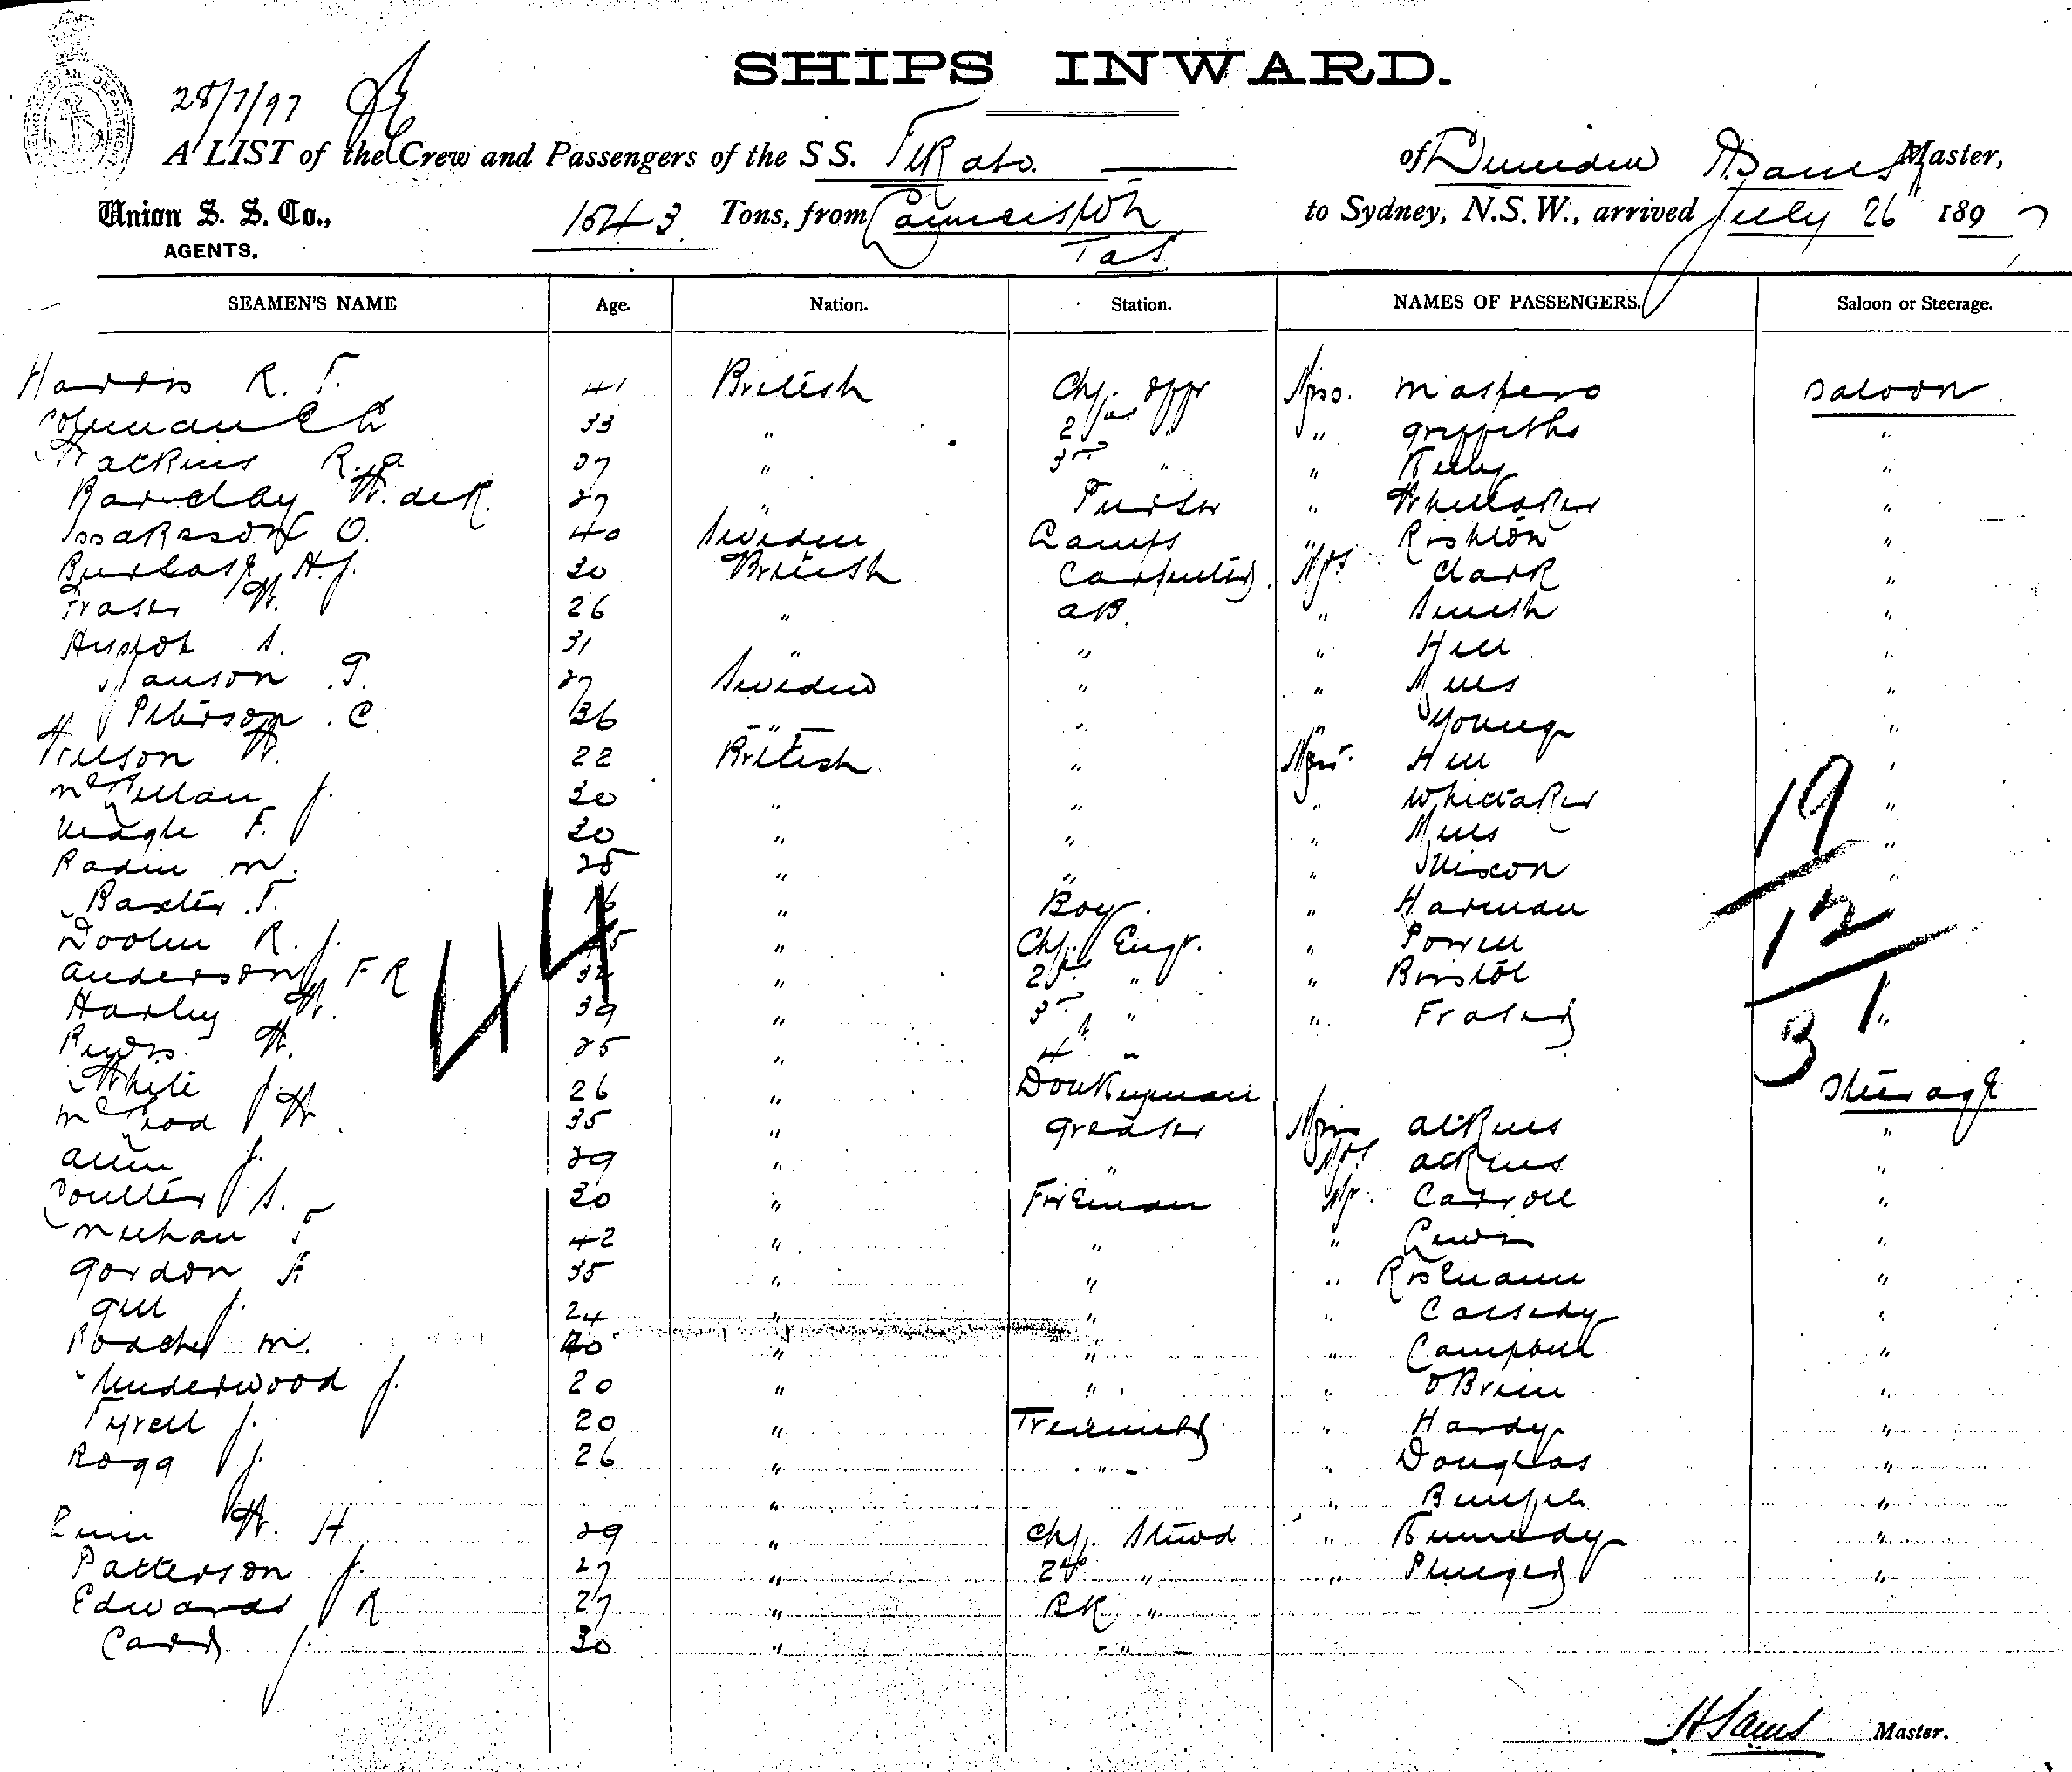 SHIPS INWARD.
28/7/97
A LIST of the Crew and Passengers of the SS. TeKapo of Dunedin Master,
Union S. S. Co., 1543 Tons, from Launceston to Sydney, N.S.W., arrived July 26 1897
AGENTS. Tas
SEAMEN'S NAME Age. Nation. Station. NAMES OF PASSENGERS. Saloon or Steerage.
Harris R. T. 41 British Chf. Offr Miss. Masters Saloon
Coleman C 33 " 2nd " Griffiths "
Watkins R. a 27 " 3rd " " Kelly "
Barclay W. deR. 27 " Purser " Whittaker "
Issakason O. 40 Sweden Lamps " Rishton "
H. J. 30 British Carpenter Mrs Clark "
Fraser W. 26 " AB. " Smith "
S. 31 " " " Hill "
Janson P. 27 Sweden " " "
Peterson C. 36 " " " Young "
Wilson W. 22 British " Hill "
McLellan J. 30 " " " Whittaker "
F. 30 " " " "
M. 25 " " " Nixon "
Baxter T. 16 " Boy " Harman
Doolin R. J. 45 " Chf. Engr. " Powell
Anderson F R 32 " 2nd " " Bristol "
Harley W. 39 " 3rd " " Fraser "
W. 25 " 4th "
White J 26 " Donkeyman Steerage
McLeod J W 35 " Greaser Atkins "
Allen J. 29 " " Mrs Atkins "
Coulter S. 30 " Fireman Mr. Carroll "
Meehan T 42 " " " Lewis "
Gordon F. 35 " " " "
Gill J. 24 " " " Cassidy "
Roach M. 40 " " " Campbell "
Underwood J. 20 " " " O'Brien "
Tyrell J. 20 " Trimmer " Hardy "
Rogg J. 26 " " " Douglas "
" " "
W. H 29 " Chf. Stewd " Kennedy "
Patterson J. 27 " 2nd " " "
Edwards R 27 " BK "
Carr J. 30 " "
44
19
12
31
Master.